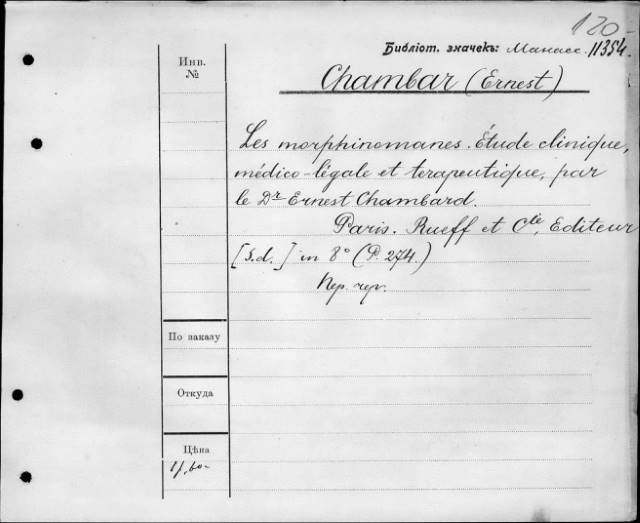 120
Библіот. значекъ: Манасс. 11354.
Инв.
№
Chambar (Ernest)
Les morphinomanes. Étude clinique,
médico-légale et terapeutique, par
le Dr Ernest Chambard.
Paris. Rueff et Cie, Editeur
[S.d.] in 8° (P. 274.)
По заказу
Откуда
Цѣна